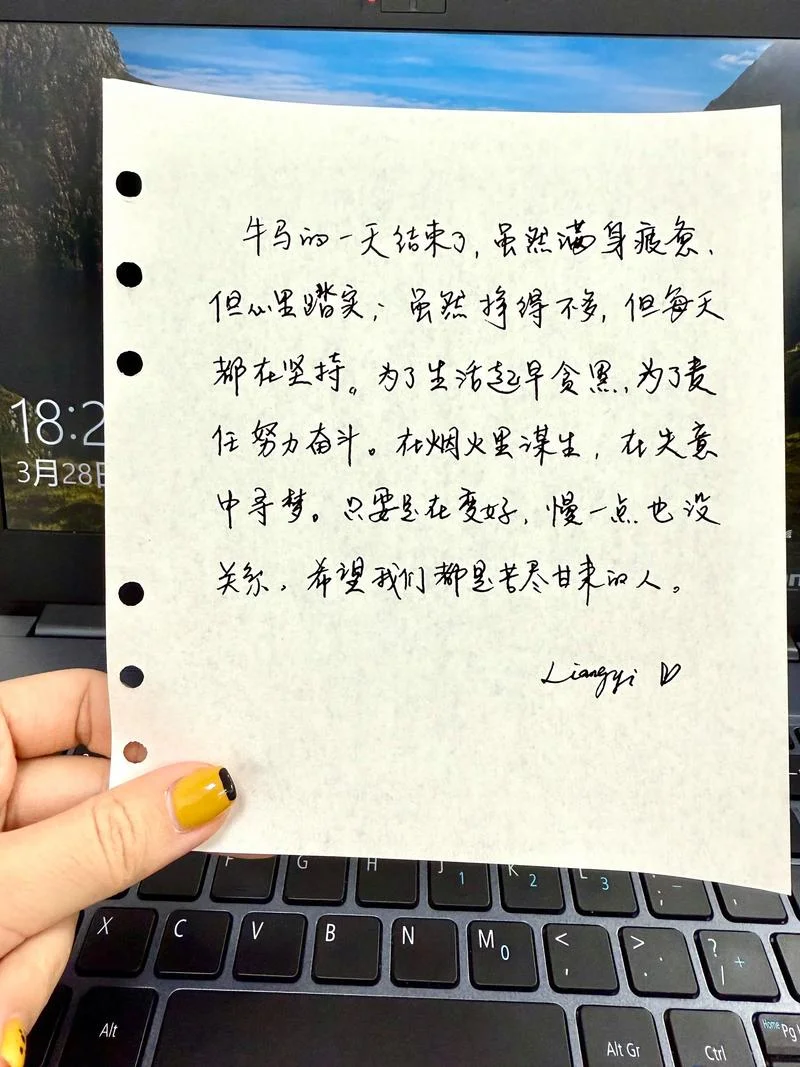 18:2
3月28日
牛马的一天结束了,虽然满身疲惫、
但心里踏实;虽然挣得不多,但每天
都在坚持。为了生活起早贪黑,为了责
任努力奋斗。在烟火里谋生,在失意
中寻梦。只要是在变好,慢一点也没
关系。希望我们都是苦尽甘来的人。
Liangyi
F G H J 1 K 2 L 3 : ;
X C V B N M 0 < , > . ? / +
Alt Alt Gr Ctrl Home Pg